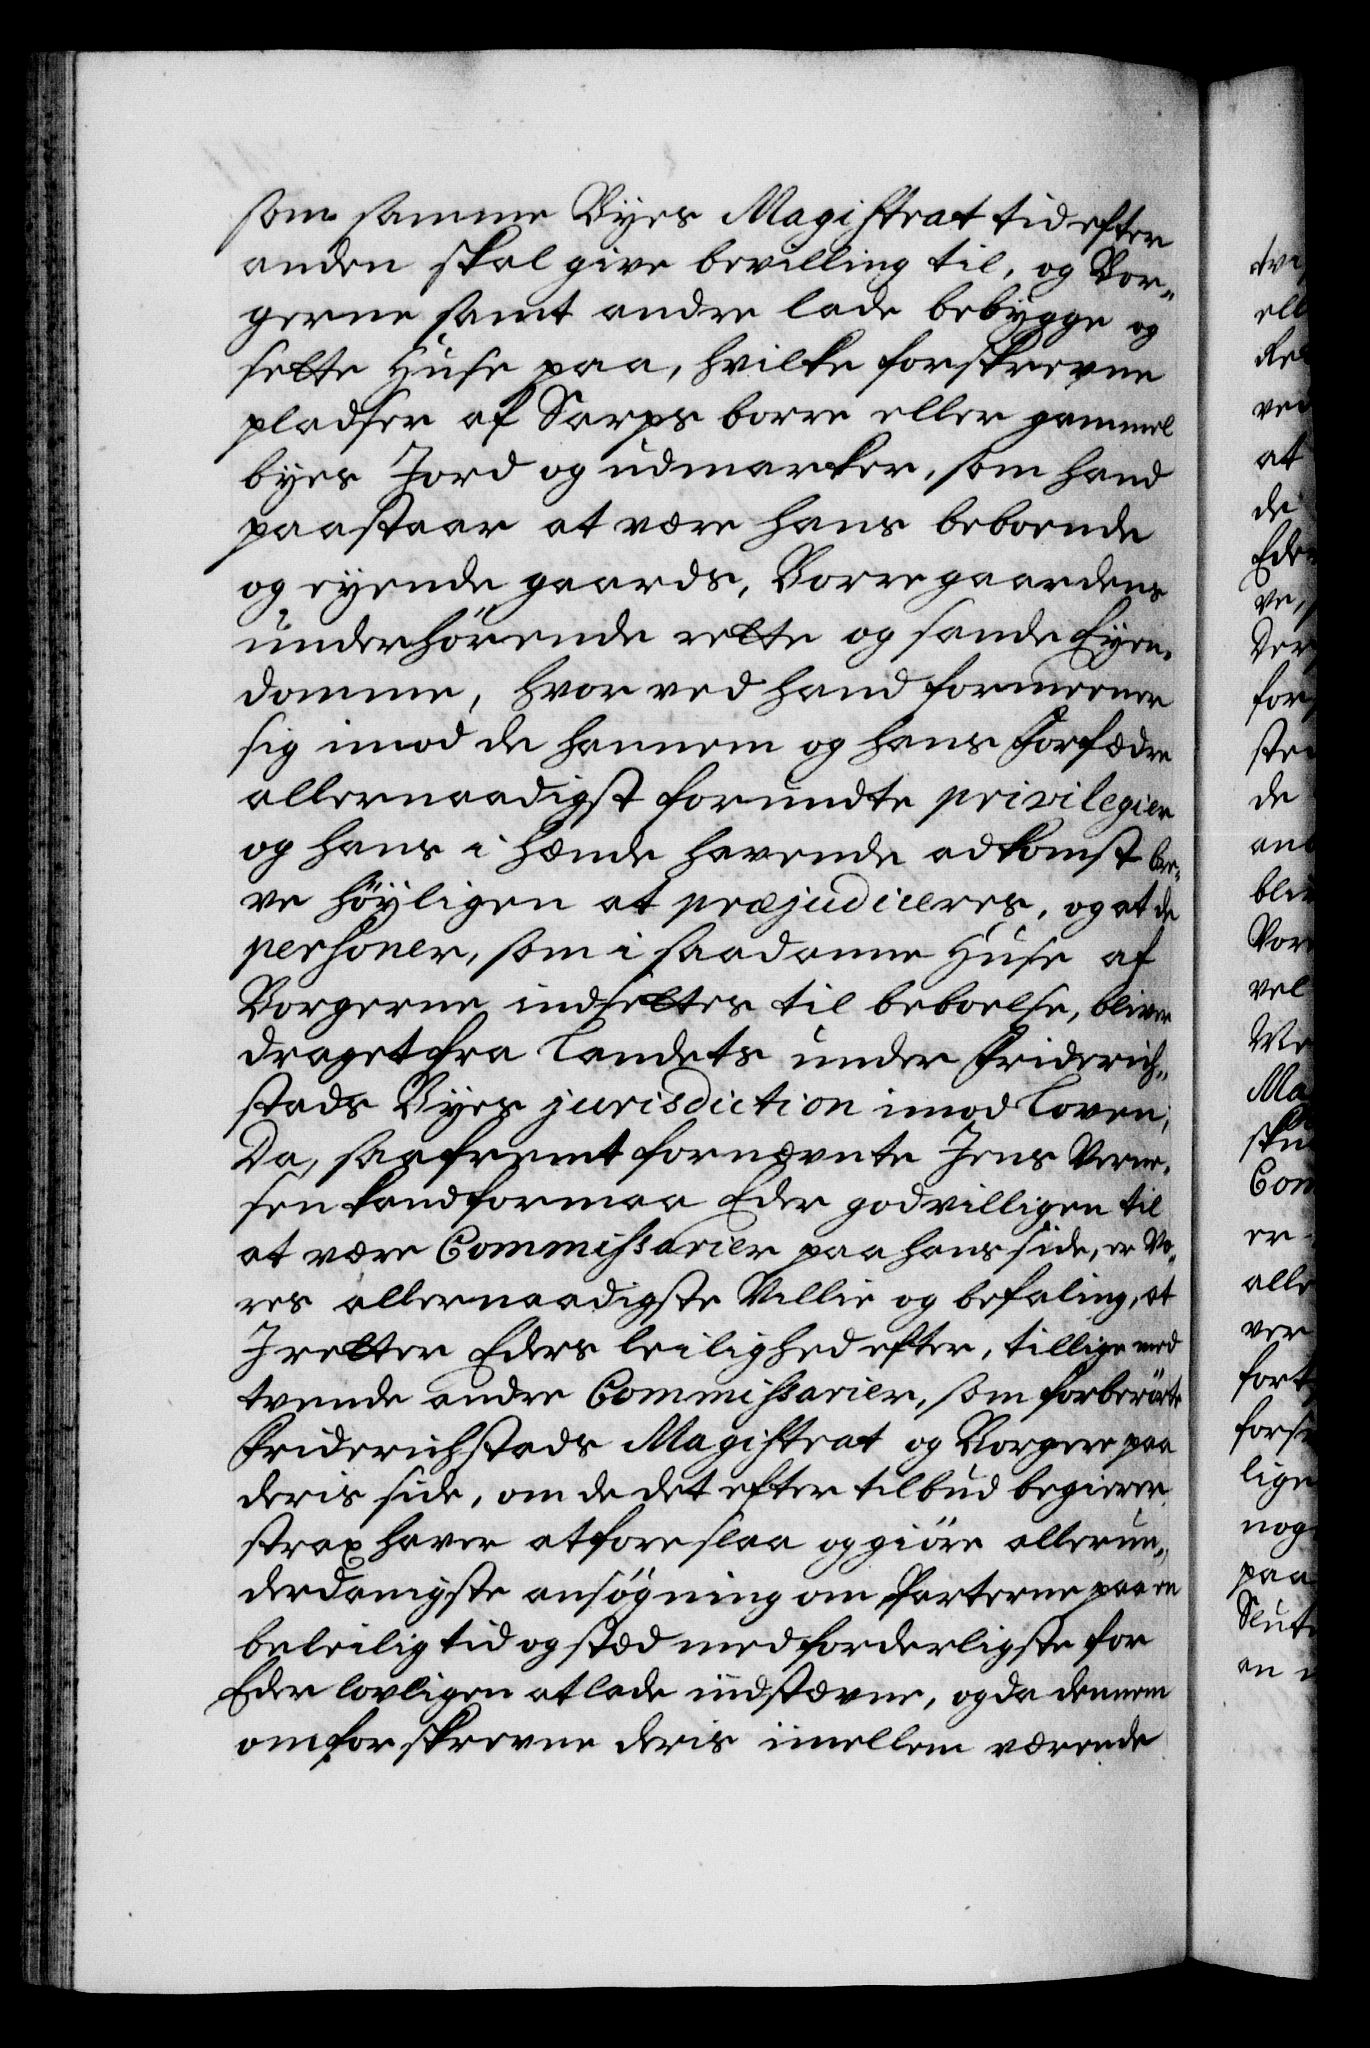 som samme Byes Magistrat tid efter
anden skal give bevilling til, og Bor-
gerne samt andre lade bebygge og
sette Huse paa, hvilke forskrevne
pladser af Sarpsborre eller gammel
byes Jord og udmarker, som hand
paastaar at være hans beboende
og eyende gaards, Borregaardens
underhörende rette og sande Eyen-
domme, hvorved hand formeener
sig imod de hannem og hans Forfædre
allernaadigst forundte privilegier
og hans i hænde havende adkomst bre-
ve höyligen at præjudiceres, og at de
personer, som i saadanne Huse af
Borgerne indsettes til beboelse, bliver
draget fra Landets under Friderich-
stads Byes jurisdiction imod Loven,
Da, saafremt fornævnte Jens Verne-
sen kand formaa Eder godvilligen til
at være Commissarier paa hans side, er Vo-
res allernaadigste Villie og befaling, at
I retter Eders leilighed efter, tillige med
tvende andre Commissarier, som forberörte
Friderichstads Magistrat og Borgere paa
deris side, om de det efter tilbud begierer
strax haver at foreslaa og giöre allerun-
derdanigste ansögning om Parterne paa en
beleilig tid og stæd med forderligste for
Eder lovligen at lade indstævne, og da dennem
om forskrevne deris imellem værende